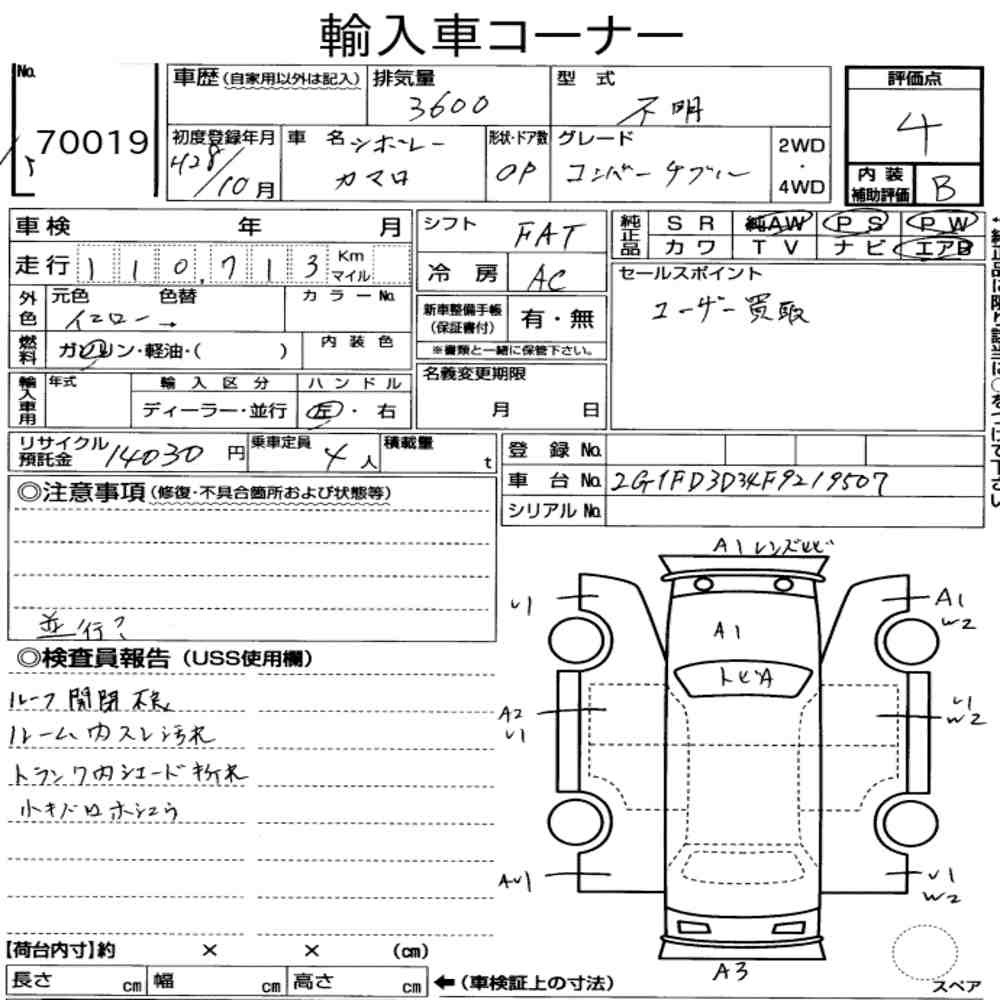 輸入車コーナー
No.
70019
車歴(自家用以外は記入)
排気量
3600
型式
不明
評価点
4
初度登録年月
H28/10月
車名
シボレー
カマロ
形状・ドア数
OP
グレード
コンバーチブル
2WD
・
4WD
内装
補助評価
B
車検 年 月
シフト
FAT
純正品
SR 純AW PS PW
カワ TV ナビ エアB
走行 110,713 Km マイル
冷房
AC
セールスポイント
ユーザー買取
外色
元色 色替
イエロー→
カラーNo.
新車整備手帳
(保証書付)
有・無
※書類と一緒に保管下さい。
燃料
ガソリン・軽油・( )
内装色
輸入車用
年式
輸入区分
ディーラー・並行
ハンドル
左・右
名義変更期限
月 日
リサイクル
預託金
14030円
乗車定員
4人
積載量
t
登録No.
車台No. 2G1FD3D34F9219507
シリアルNo.
◎注意事項(修復・不具合箇所および状態等)
並行?
◎検査員報告(USS使用欄)
ルーフ開閉不良
ルーム内スレ汚れ
トランク内シェード折れ
小キズロホシュウ
A1 レンズヒビ
U1
A1
W2
A1
トビA
A2
U1
U1
W2
AU1
U1
W2
A3
スペア
【荷台内寸】約 × × (cm)
長さ cm 幅 cm 高さ cm
←(車検証上の寸法)